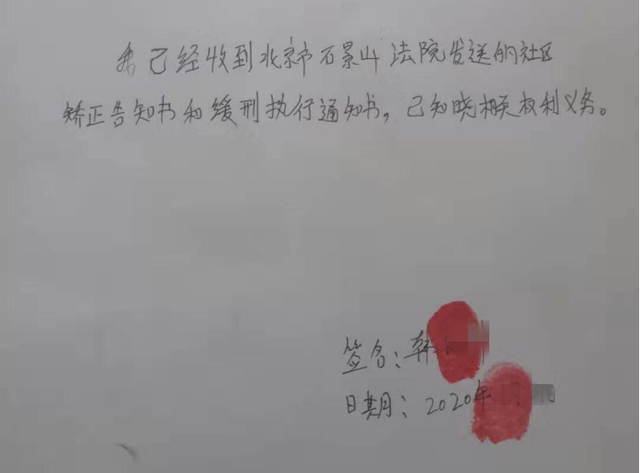 我已经收到北京市石景山法院发送的社区
矫正告知书和缓刑执行通知书，已知晓相关权利义务。
签名：韩
日期：2020年